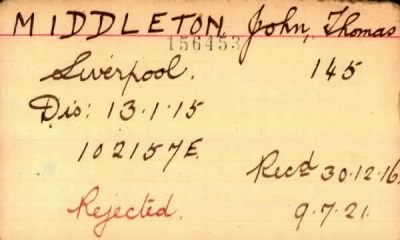 MIDDLETON, John, Thomas
156453
Liverpool. 145
Dis: 13.1.15
102157E.
Recd 30.12.16.
Rejected. 9.7.21.